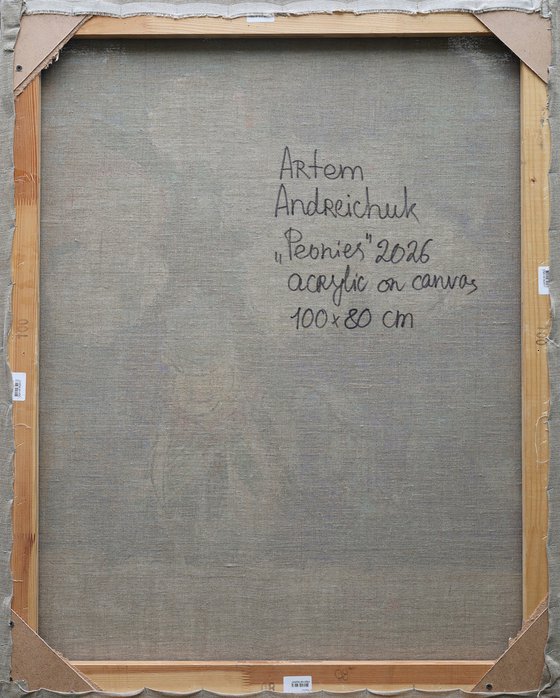 Artem
Andreichuk
„Peonies" 2026
acrylic on canvas
100x80 cm
100